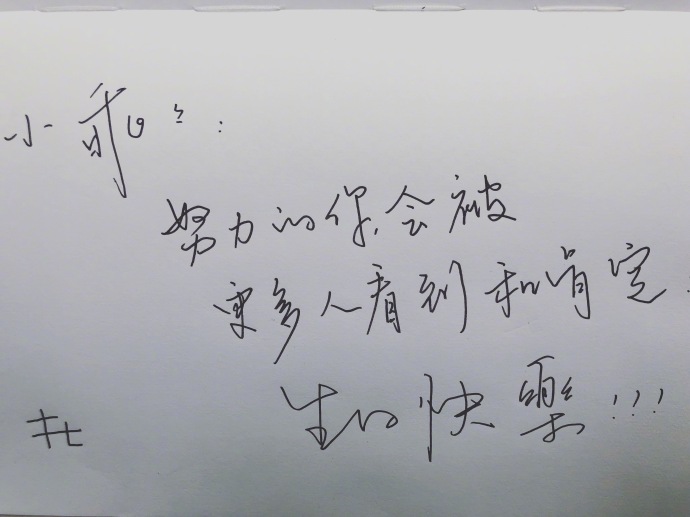 小乖：
努力的你，会被
更多人看到和肯定.
生的快樂!!!